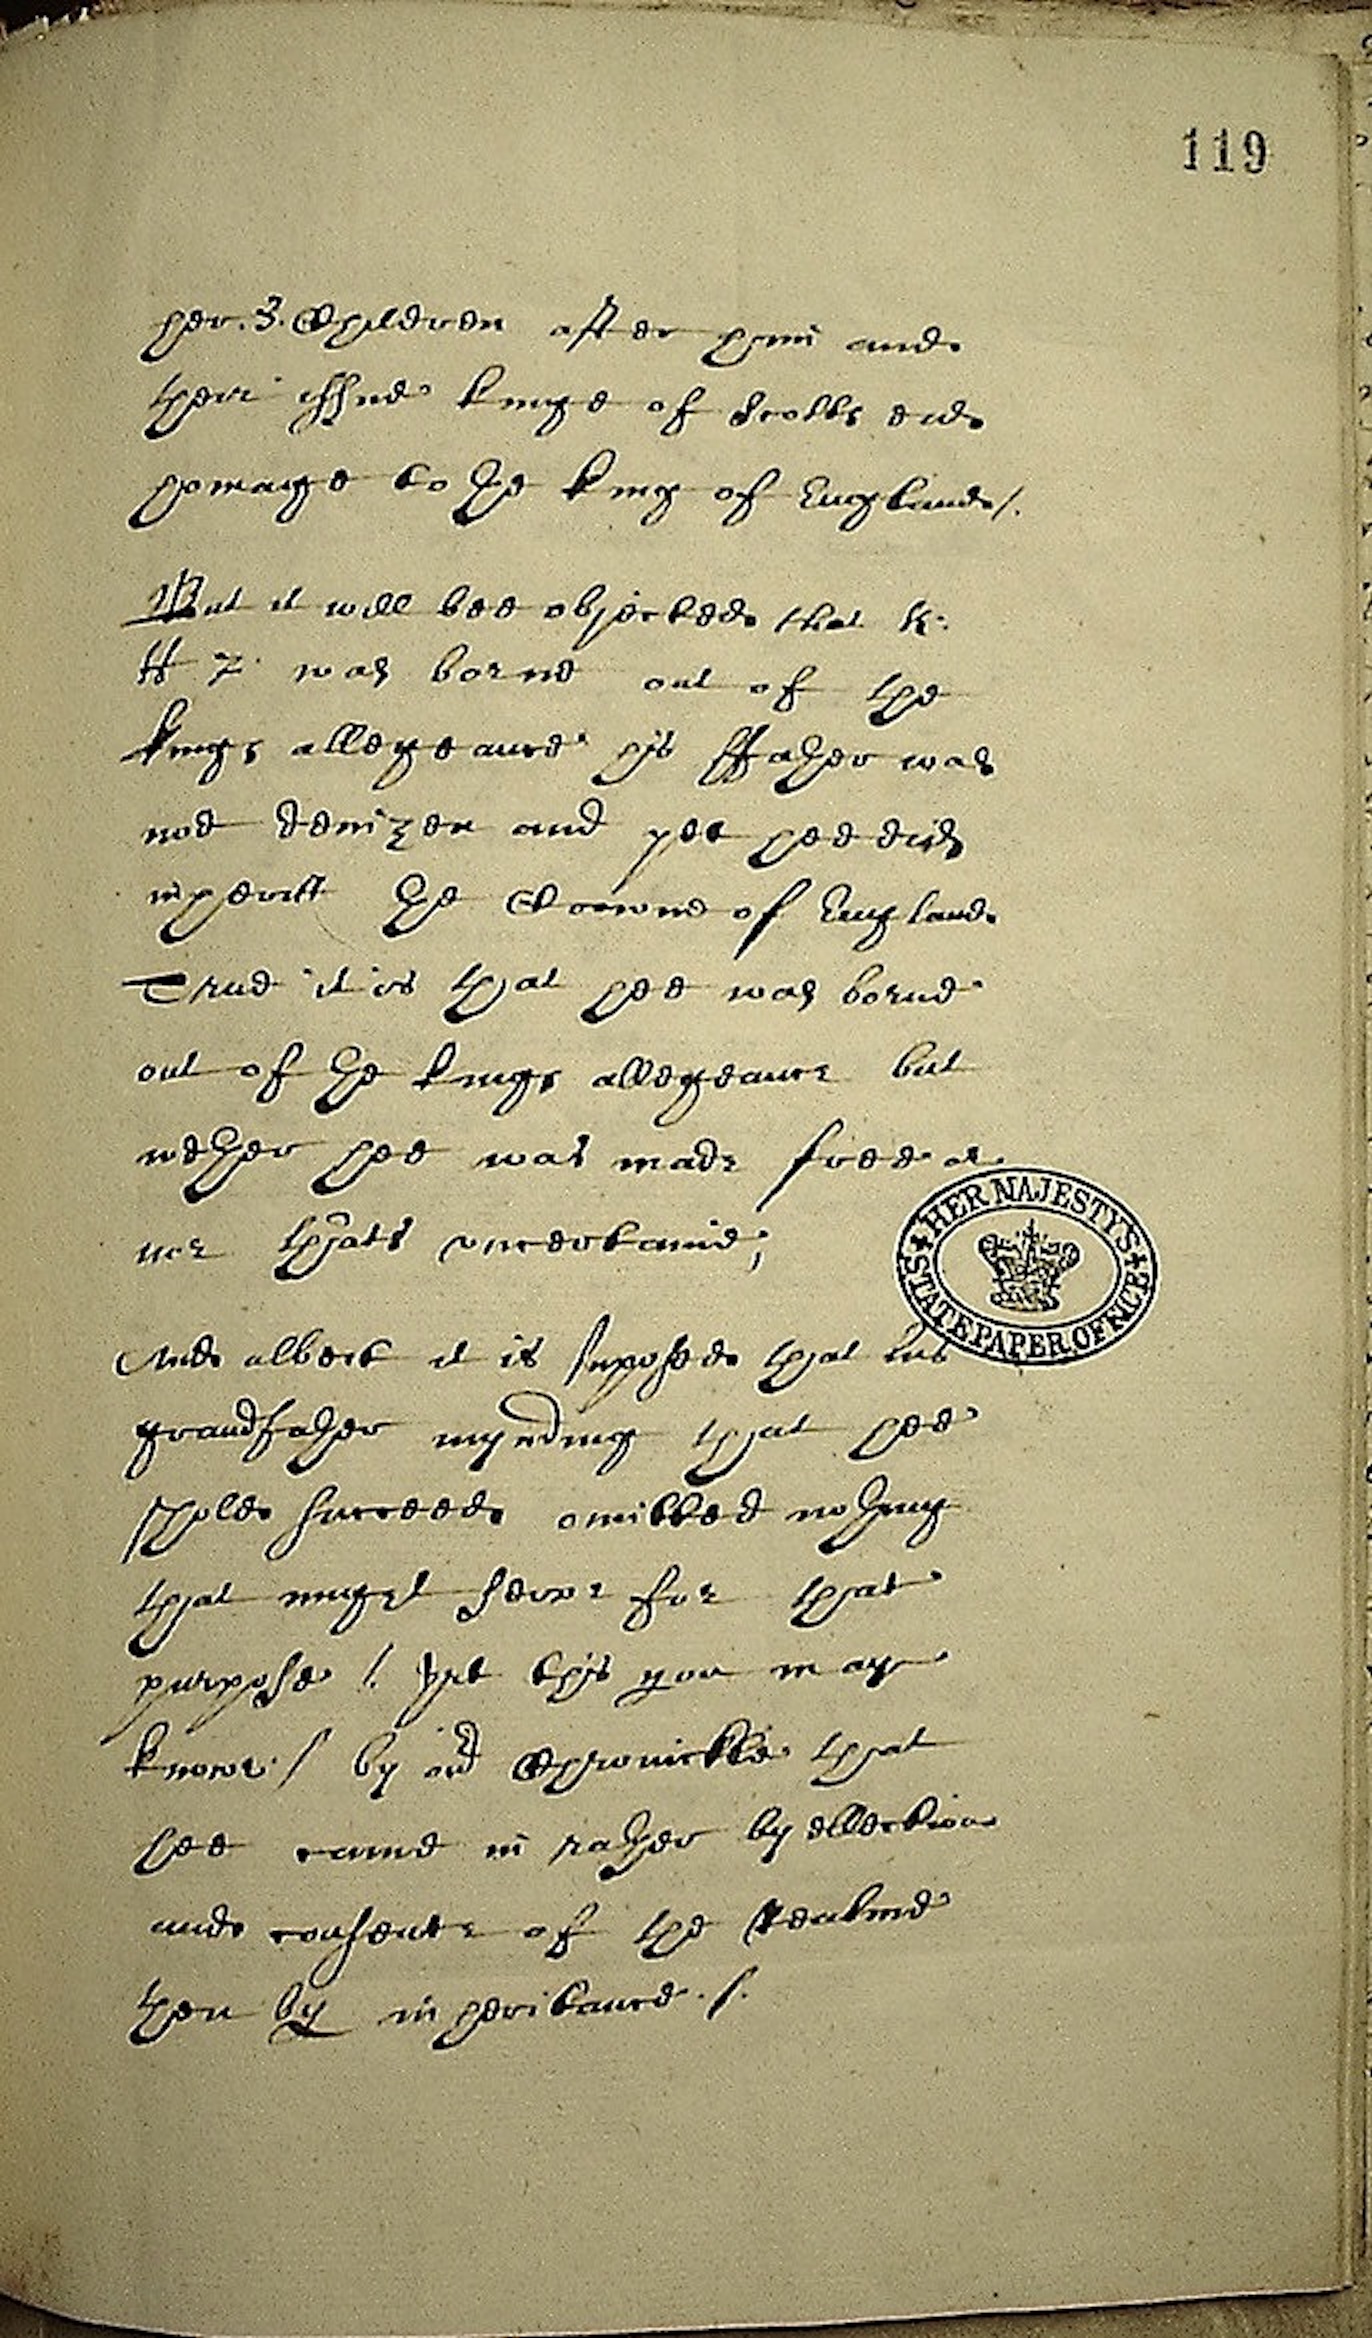 119
her .3. Children after hym and
their issue kinge of Scotts did
homaige to the king of England /.
But it will bee objected that K:
H 7 was borne out of the
kings allegeance his ffather was
noe denizen and yet hee did
inheritt the Crowne of England
True it is that hee was borne
out of the kings allegeance but
nether hee was made free or
nor thats uncertaine;
And albeit it is supposed that his
grandfather myndinge that hee
shold succeed omitted nothing
that might serve for that
purpose /. yet this you may
knowe / by our Chronickle that
hee came in rather by ellection
and consente of the Realme
then by inheritance . /.
HER MAJESTY'S
STATE PAPER OFFICE